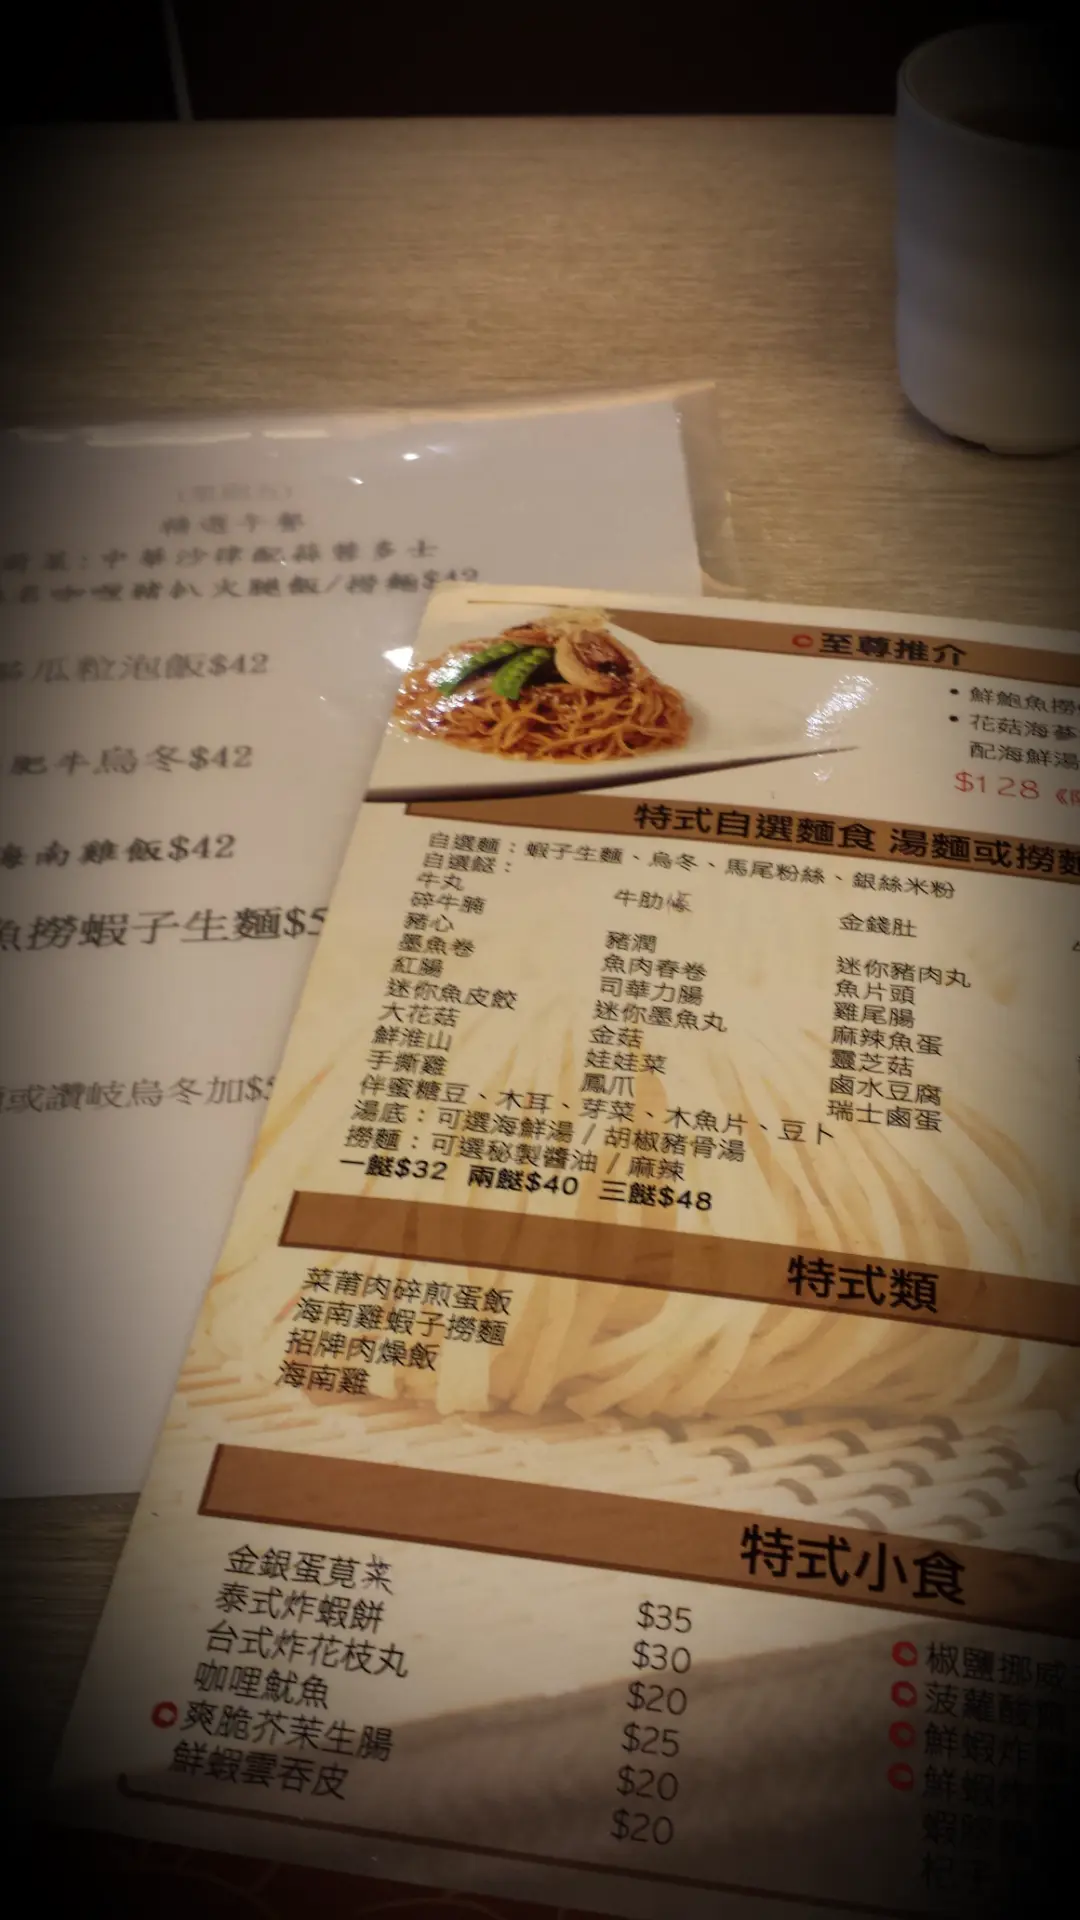 精選午餐
中華沙律配蒜蓉多士
咖喱豬扒火腿飯/撈麵$42
瓜粒泡飯$42
肥牛烏冬$42
海南雞飯$42
魚撈蝦子生麵$5
或讚岐烏冬加$5
至尊推介
• 鮮鮑魚撈
• 花菇海蔘
配海鮮湯
$128
特式自選麵食 湯麵或撈麵
自選麵：蝦子生麵、烏冬、馬尾粉絲、銀絲米粉
自選餸：
牛丸
碎牛腩 牛肋
豬心 金錢肚
墨魚卷 豬潤
紅腸 魚肉春卷 迷你豬肉丸
迷你魚皮餃 司華力腸 魚片頭
大花菇 迷你墨魚丸 雞尾腸
鮮淮山 金菇 麻辣魚蛋
手撕雞 娃娃菜 靈芝菇
鳳爪 鹵水豆腐
瑞士鹵蛋
伴蜜糖豆、木耳、芽菜、木魚片、豆卜
湯底：可選海鮮湯 / 胡椒豬骨湯
撈麵：可選秘製醬油 / 麻辣
一餸$32 兩餸$40 三餸$48
特式類
菜莆肉碎煎蛋飯
海南雞蝦子撈麵
招牌肉燥飯
海南雞
特式小食
金銀蛋莧菜 $35
泰式炸蝦餅 $30
台式炸花枝丸 $20
咖哩魷魚 $25
爽脆芥茉生腸 $20
鮮蝦雲吞皮 $20
椒鹽挪威
菠蘿酸
鮮蝦炸
鮮蝦